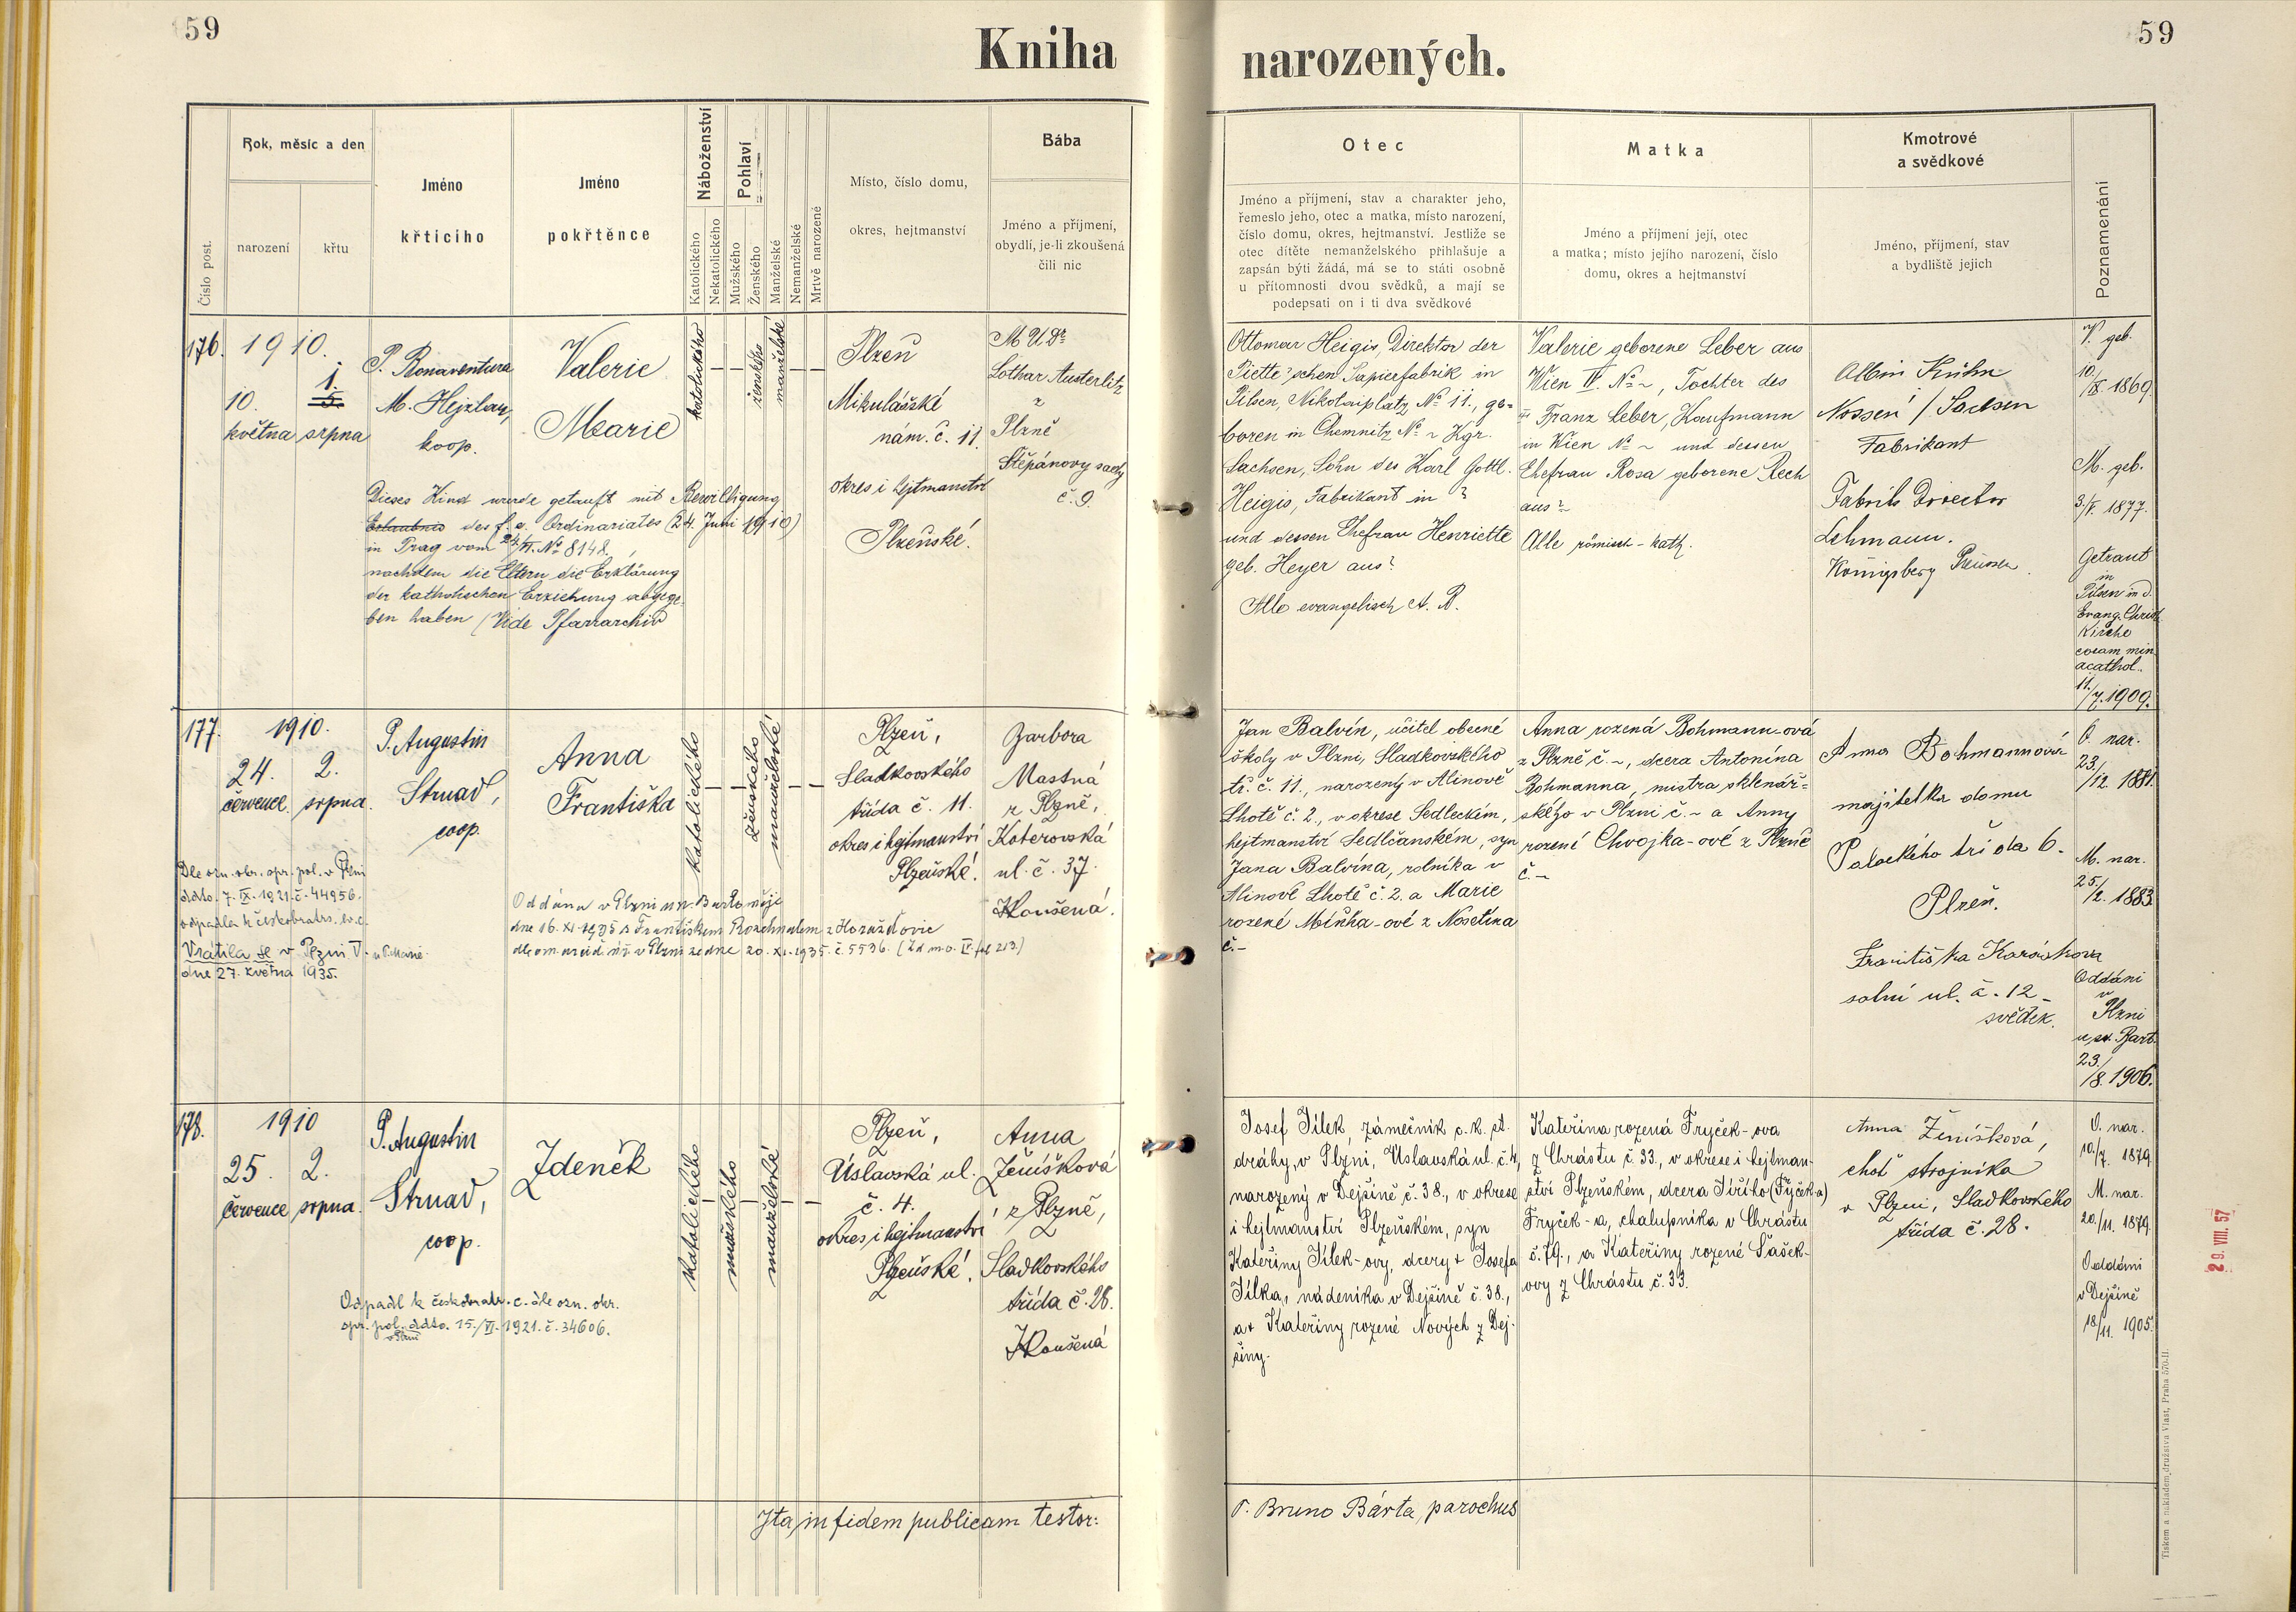 59
Kniha
Rok, měsíc a den
narození
křtu
Číslo post.
Jméno
křtícího
Jméno
pokřtěnce
Náboženství
Katolického
Nekatolického
Pohlaví
Mužského
Ženského
Manželské
Nemanželské
Mrtvě narozené
Místo, číslo domu,
okres, hejtmanství
Bába
Jméno a příjmení,
obydlí, je-li zkoušená
čili nic
176.
1910.
10.
května
1.
5.
srpna
P. Bonaventura
M. Hejzlar,
koop.
Valerie
Marie
katolického
ženského
manželské
Plzeň
Mikulášské
nám. č. 11.
okres i hejtmanství
Plzeňské.
MUDr
Lothar Austerlitz
z
Plzně
Štěpánovy sady
č. 9.
Dieses Kind wurde getauft mit Bewilligung
Erlaubnis des f. e. Ordinariates (24. Juni 1910)
in Prag vom 24/VI. No 8148.,
nachdem die Eltern die Erklärung
der katholischen Erziehung abgege-
ben haben (Vide Pfarrarchiv
177.
1910.
24.
července
2.
srpna.
P. Augustin
Strnad,
coop.
Anna
Františka
katolického
ženského
manželské
Plzeň,
Sladkovského
třída č. 11.
okres i hejtmanství
Plzeňské.
Barbora
Mastná
z Plzně,
Koterovská
ul. č. 37.
Zkoušená.
Dle ozn. okr. spr. pol. v Plzni
ddto. 7. IX. 1921. č. 44956.
odpadla k českobratrs. ev. c.
Vrátila se v Plzni V.
dne 27. května 1935.
Oddána v Plzni u sv. Bartoloměje
dne 16. XI. 1935 s Františkem z Horažďovic
v Plzni ze dne 20. XI. 1935. č. 5536.
178.
1910
25.
července
2.
srpna.
P. Augustin
Strnad,
coop.
Zdeněk
katolického
mužského
manželské
Plzeň,
Úslavská ul.
č. 4.
okres i hejtmanství
Plzeňské.
Anna
Ženíšková
z Plzně,
Sladkovského
třída č. 28.
Zkoušená
Odpadl k českobratr. c. dle ozn. okr.
spr. pol. ddto. 15./VI. 1921. č. 34606.
v Plzni
Ita in fidem publicam testor:
59
narozených.
Otec
Jméno a příjmení, stav a charakter jeho,
řemeslo jeho, otec a matka, místo narození,
číslo domu, okres, hejtmanství. Jestliže se
otec dítěte nemanželského přihlašuje a
zapsán býti žádá, má se to státi osobně
u přítomnosti dvou svědků, a mají se
podepsati on i ti dva svědkové
Matka
Jméno a příjmení její, otec
a matka; místo jejího narození, číslo
domu, okres a hejtmanství
Kmotrové
a svědkové
Jméno, příjmení, stav
a bydliště jejich
Poznamenání
Ottomar Heigis, Direktor der
Piette'schen Papierfabrik in
Pilsen, Nikolaiplatz No 11., ge-
boren in Chemnitz No ~ Kgr.
Sachsen, Sohn des Karl Gottl.
Heigis, Fabrikant in ?
und dessen Ehefrau Henriette
geb. Heyer aus?
Alle evangelisch A. B.
Valerie geborene Leber aus
Wien IV. No ~, Tochter des
Franz Leber, Kaufmann
in Wien No ~ und dessen
Ehefrau Rosa geborene Rech
aus? ~
Alle römisch-kath.
Albin Kühn
Nossen / Sachsen
Fabrikant
Fabriks Director
Lehmann.
Königsberg Preussen.
V. geb.
10./IX. 1869.
M. geb.
3./V. 1877.
Getraut
in
Pilsen in d.
Evang. Christ.
Kirche
coram min.
acathol.
11./7. 1909.
Jan Balvín, učitel obecné
školy v Plzni, Sladkovského
tř. č. 11., narozený v Alinově
Lhotě č. 2., v okrese Sedleckém,
hejtmanství Sedlčanském, syn
Jana Balvína, rolníka v
Alinově Lhotě č. 2. a Marie
rozené Míňha-ové z Nosetína
č. -
Anna rozená Bohmann-ová
z Plzně č. ~, dcera Antonína
Bohmanna, mistra sklenář-
ského v Plzni č. ~ a Anny
rozené Chvojka-ové z Plzně
č. ~
Anna Bohmannová
majitelka domu
Palackého třída 6.
Plzeň.
Františka
solní ul. č. 12 -
svědek.
O. nar.
23./12. 1881.
M. nar.
25./2. 1883.
Oddáni
v
Plzni
u sv. Bart.
23./8. 1906.
Josef Jílek, zámečník c. k. st.
dráhy, v Plzni, Úslavská ul. č. 4,
narozený v Dejšině č. 38., v okrese
i hejtmanství Plzeňském, syn
Kateřiny Jílek-ovy, dcery + Josefa
Jílka, nádeníka v Dejšině č. 38.,
a + Kateřiny rozené Nových z Dej-
šiny.
Kateřina rozená Fryček-ova
z Chrástu č. 33., v okrese i hejtman-
ství Plzeňském, dcera Jiřího (Fýček-a)
Fryček-a, chalupníka v Chrástu
č. 79., a Kateřiny rozené Sašek-
ovy z Chrástu č. 33.
Anna Ženíšková,
choť strojníka
v Plzni, Sladkovského
třída č. 28.
O. nar.
10./7. 1879.
M. nar.
20./11. 1879.
Oddáni
v Dejšině
18./11. 1905.
P. Bruno Bárta, parochus
29. VIII. 57
Tiskem a nakladem družstva Vlast, Praha 570-II.